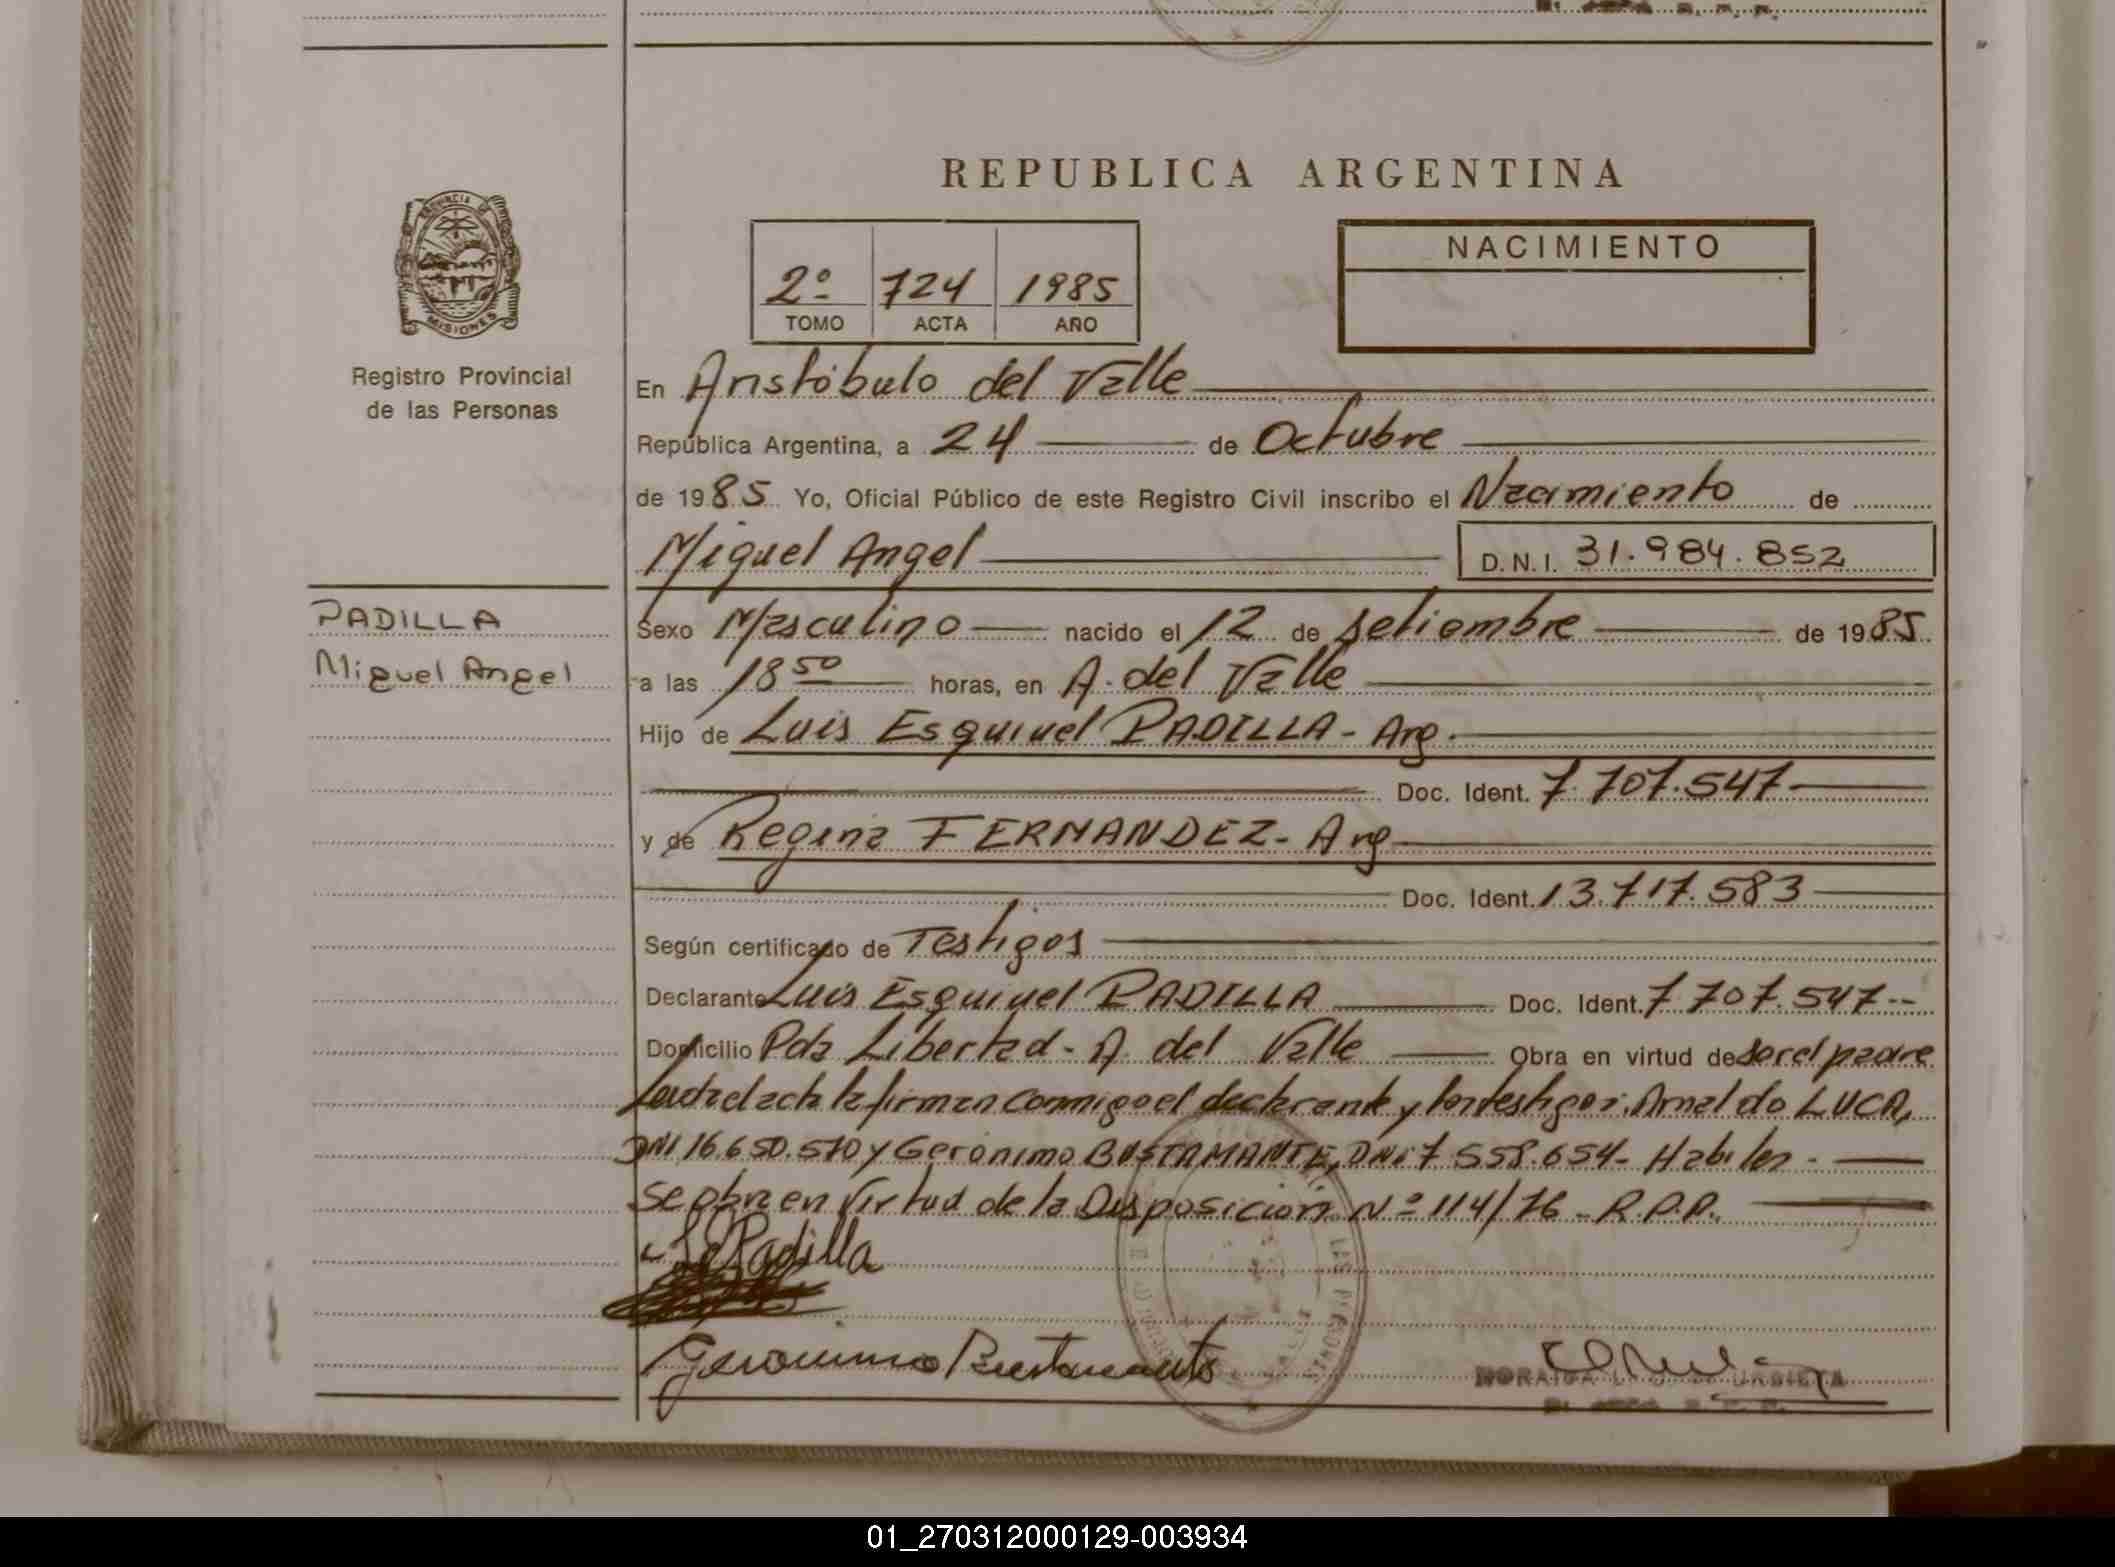 REPUBLICA ARGENTINA
PROVINCIA DE
MISIONES
Registro Provincial
de las Personas
2º 724 1985
TOMO ACTA AÑO
NACIMIENTO
En Aristóbulo del Valle
República Argentina, a 24 de Octubre
de 1985 Yo, Oficial Público de este Registro Civil inscribo el Nacimiento de
Miguel Angel
D.N.I. 31.984.852
PADILLA
Miguel Angel
Sexo Masculino nacido el 12 de setiembre de 1985
a las 18 50 horas, en A. del Valle
Hijo de Luis Esquivel PADILLA - Arg.
Doc. Ident. 7.707.547
y de Regina FERNANDEZ - Arg
Doc. Ident. 13.717.583
Según certificado de Testigos
Declarante Luis Esquivel PADILLA Doc. Ident. 7.707.547--
Domicilio Pda Libertad - A. del Valle Obra en virtud de ser el padre
Leida el acta la firman conmigo el declarante y los testigos: Arnaldo LUCA,
DNI 16.650.570 y Gerónimo BUSTAMANTE, DNI 7.558.654 - Habiles -
Se obra en virtud de la Disposición Nº 114/76 - R.P.P.
L E Padilla
Geronimo Bustamante
01_270312000129-003934